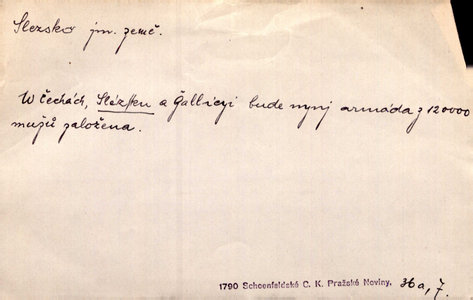 Slezsko jm. zemč.
W Čechách, Slézsku a Gallicyi bude nynj armáda z 120000
mužů položena.
1790 Schoenfeldské C. K. Pražské Noviny. 36a, 7.